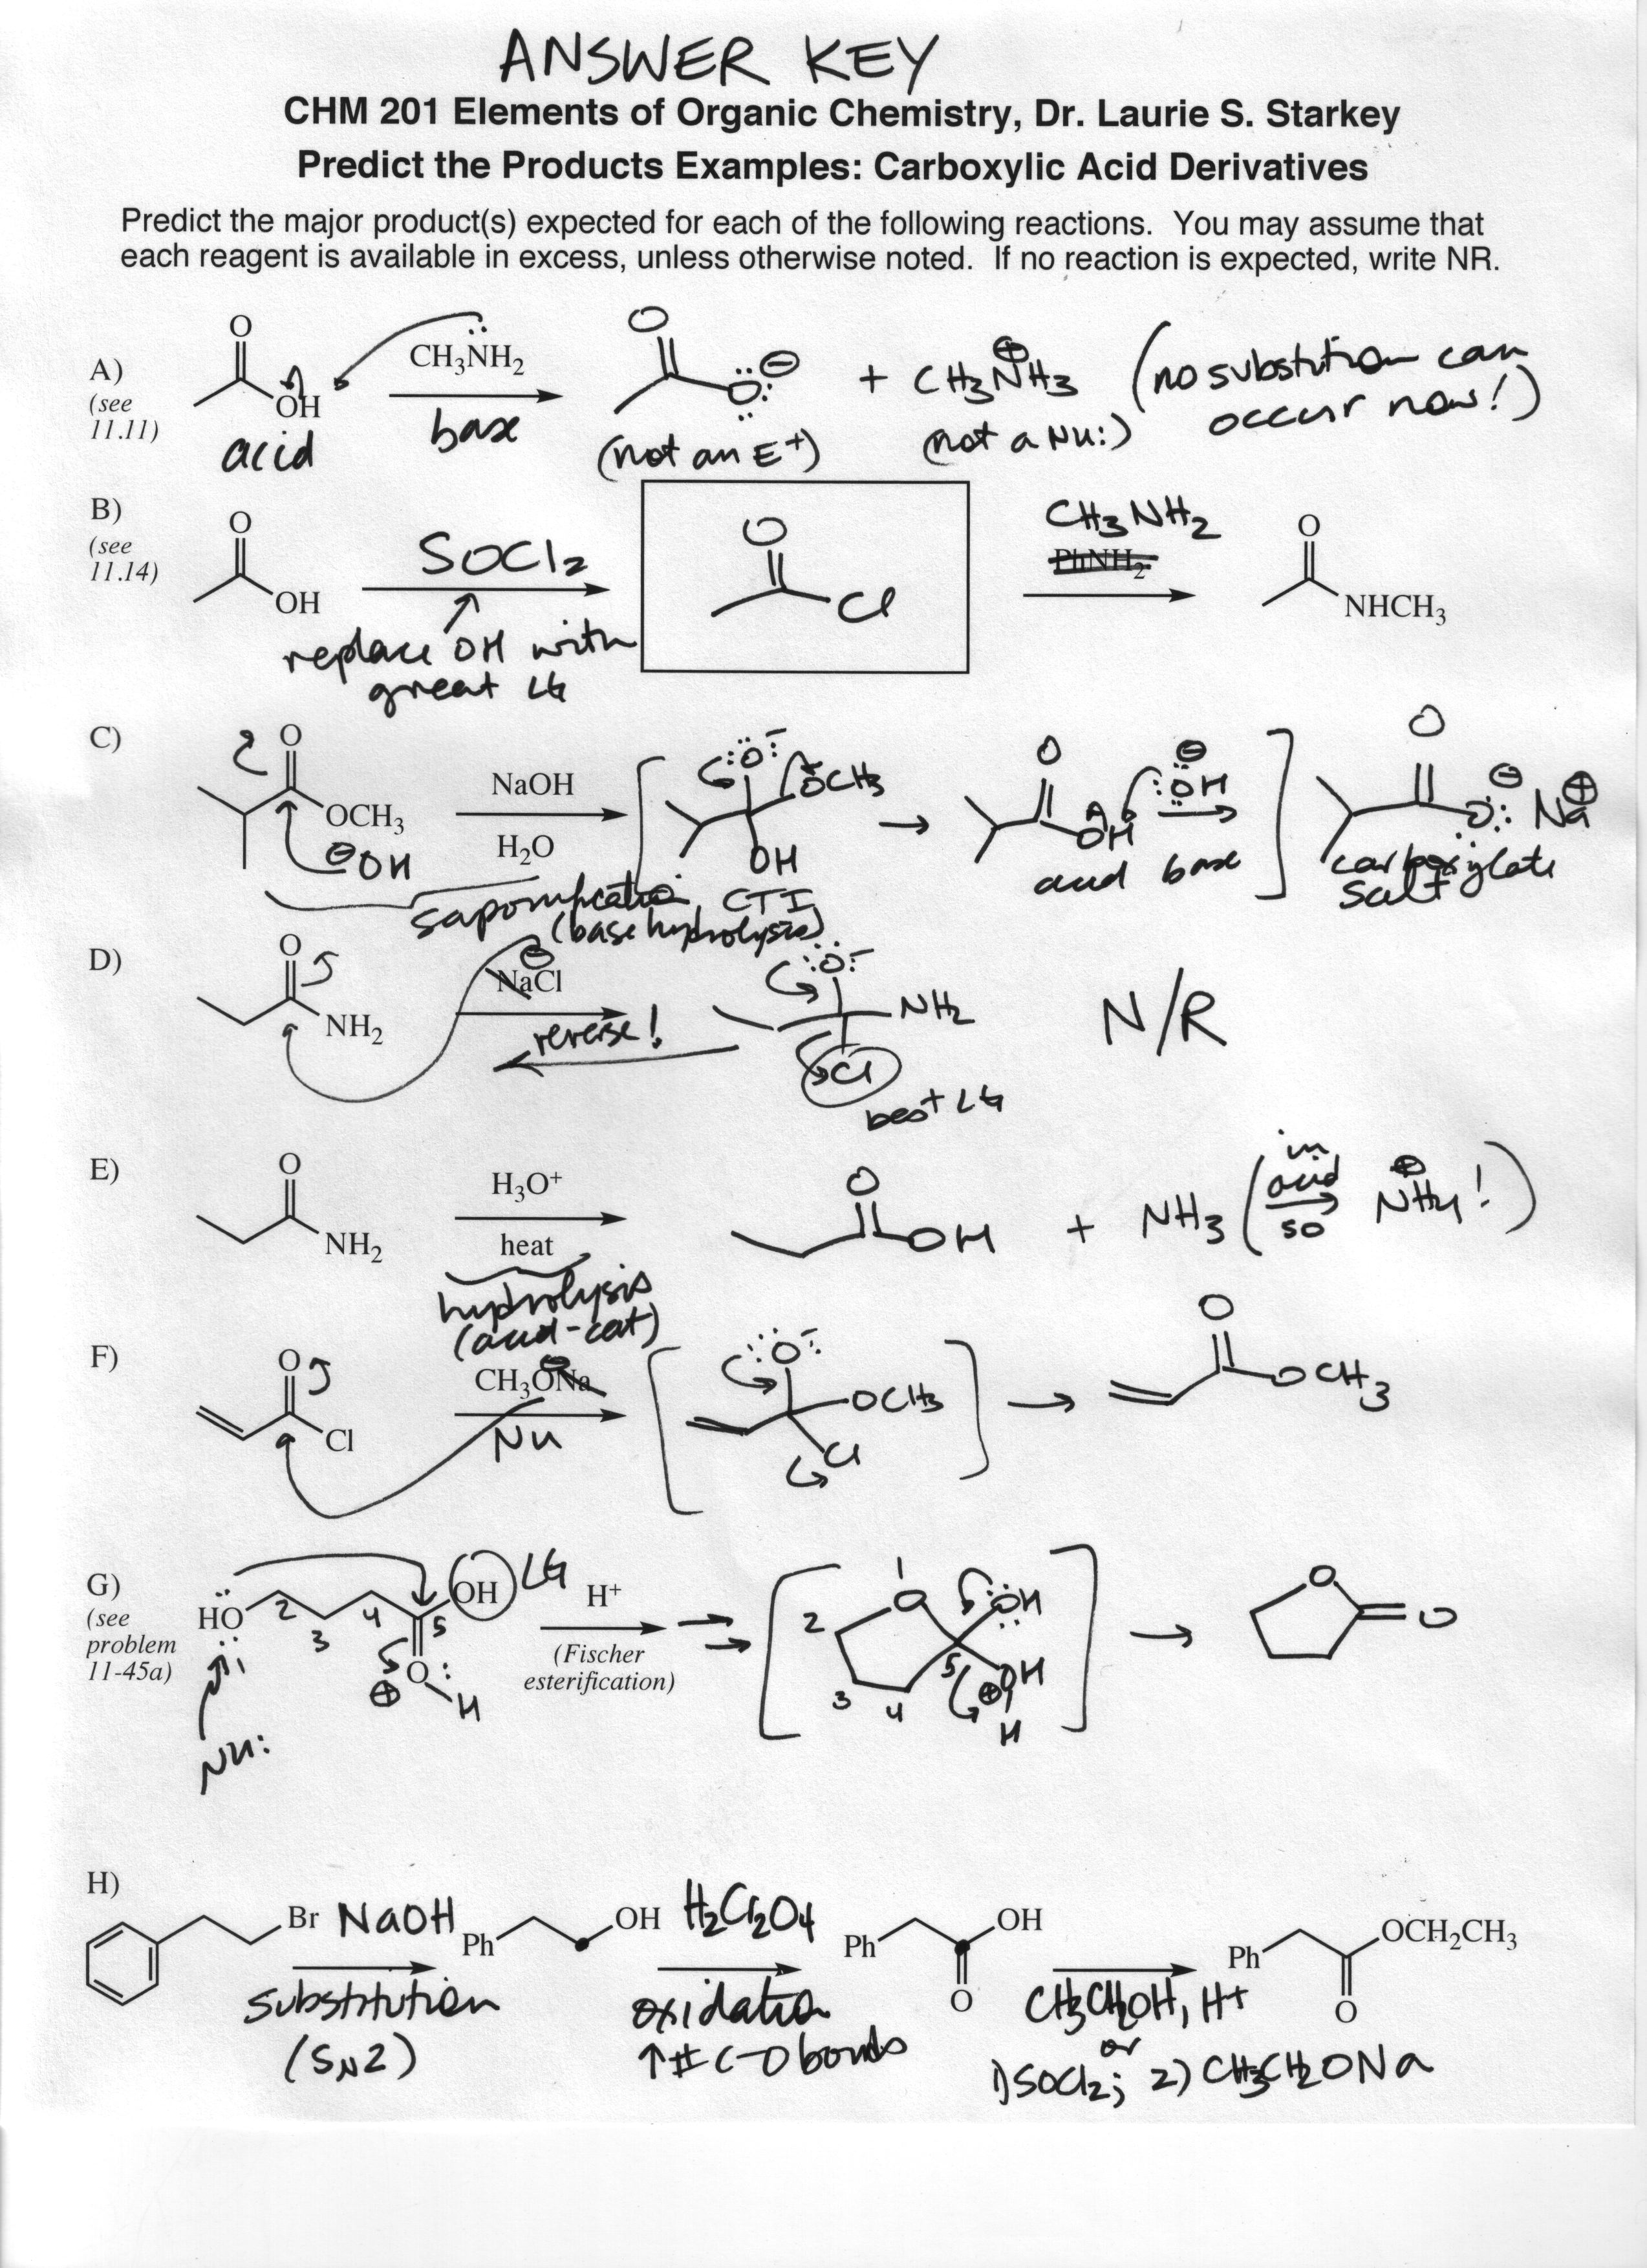 ANSWER KEY
CHM 201 Elements of Organic Chemistry, Dr. Laurie S. Starkey
Predict the Products Examples: Carboxylic Acid Derivatives
Predict the major product(s) expected for each of the following reactions. You may assume that
each reagent is available in excess, unless otherwise noted. If no reaction is expected, write NR.
A)
(see
11.11)
O
OH
acid
CH₃NH₂
base
O
O:⊖
(not an E+)
+ CH₃N⊕H₃
(not a Nu:)
(no substitution can
occur now!)
B)
(see
11.14)
O
OH
SOCl₂
replace OH with
great LG
O
Cl
CH₃NH₂
PhNH₂
O
NHCH₃
C)
O
OCH₃
⊖OH
NaOH
H₂O
saponification
(base hydrolysis)
:O:⁻
OCH₃
OH
CTI
O
OH
acid
⊖:OH
base
O
O:⊖ Na⊕
carboxylate
salt
D)
O
NH₂
NaCl⊖
reverse!
:O:⁻
NH₂
Cl
best LG
N/R
E)
O
NH₂
H₃O⁺
heat
hydrolysis
(acid-cat)
O
OH
+ NH₃ (in acid so → ⊕NH₄!)
F)
O
Cl
CH₃O⊖Na
Nu
:O:⁻
OCH₃
Cl
O
OCH₃
G)
(see
problem
11-45a)
HO
2
3
4
5
OH
LG
⊕O:
H
Nu:
H⁺
(Fischer
esterification)
O
2
3
4
5
OH
⊕OH
H
O
O
H)
Br
NaOH
substitution
(SN2)
Ph
OH
H₂Cr₂O₄
oxidation
↑# C-O bonds
Ph
OH
O
CH₃CH₂OH, H+
or
1) SOCl₂; 2) CH₃CH₂ONa
Ph
OCH₂CH₃
O